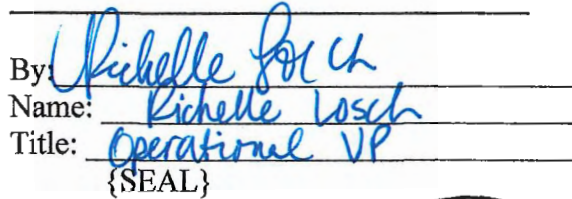 By: Richelle Losch
Name: Richelle Losch
Title: Operational VP
{SEAL}